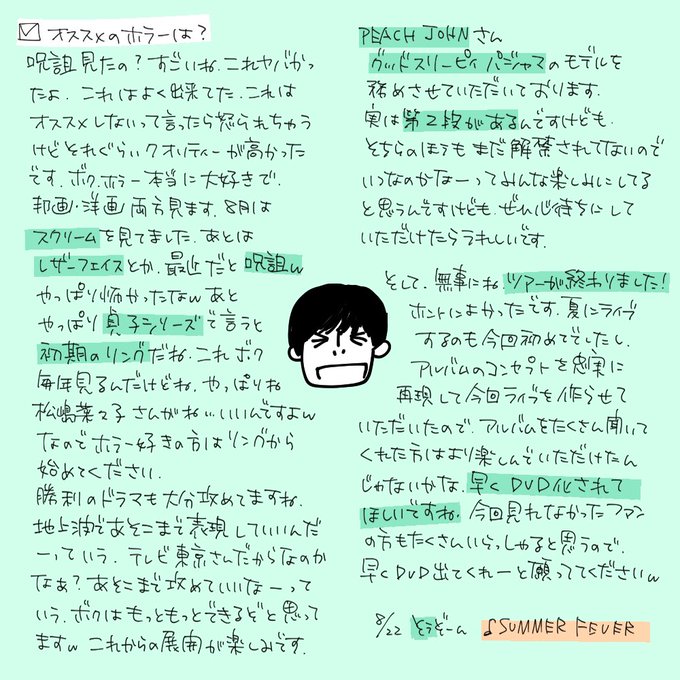 オススメのホラーは?
呪詛見たの?すごいね.これヤバかっ
たよ.これはよく出来てた.これは
オススメしないって言ったら怒られちゃう
けどそれぐらいクオリティーが高かった
です.ボク、ホラー本当に大好きで.
邦画・洋画両方見ます.8月は
スクリームを見てました.あとは
レザーフェイスとか.最近だと呪詛w
やっぱり怖かったなwあと
やっぱり貞子シリーズで言うと
初期のリングだね.これボク
毎年見るんだけどね.やっぱりね
松嶋菜々子さんがね…いいんですよw
なのでホラー好きの方はリングから
始めてください.
勝利のドラマも大分攻めてますね.
地上波であそこまで表現していいんだ
ーっていう.テレビ東京さんだからなのか
なぁ?あそこまで攻めていいなーって
いう.ボクはもっともっとできるぞと思って
ますw これからの展開が楽しみです.
PEACH JOHNさん
グッドスリーピィパジャマのモデルを
務めさせていただいております.
実は第2段があるんですけども.
そちらのほうもまだ解禁されてないので
いつなのかなーってみんな楽しみにしてる
と思うんですけども.ぜひ心待ちにして
いただけたらうれしいです.
そして.無事にね.ツアーが終わりました!
ホントによかったです.夏にライブ
するのも今回初めてでしたし.
アルバムのコンセプトを忠実に
再現して今回ライブを作らせて
いただいたので.アルバムをたくさん聞いて
くれた方はより楽しんでいただけたん
じゃないかな.早くDVD化されて
ほしいですね.今回見れなかったファン
の方もたくさんいらっしゃると思うので.
早くDVD出てくれーと願っててくださいw
8/22 とうぞーん ♪SUMMER FEVER